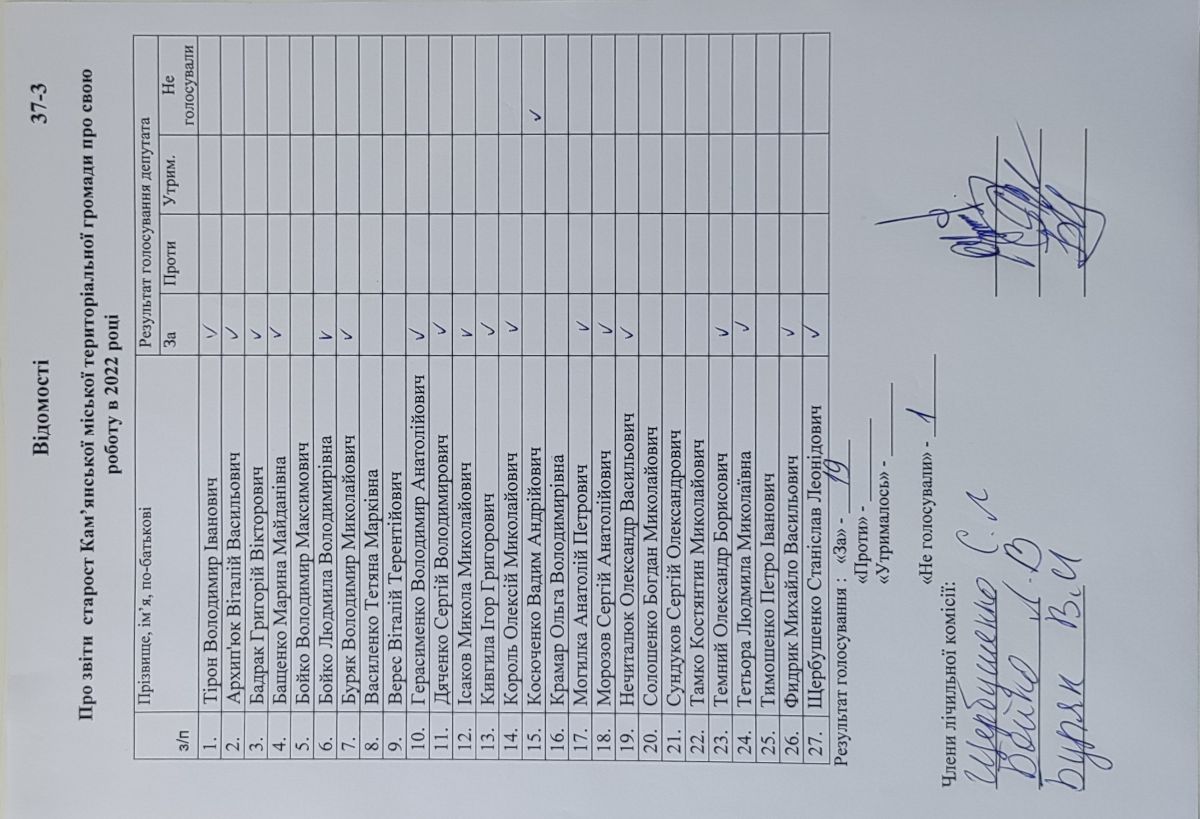 Відомості 37-3
Про звіти старост Кам’янської міської територіальної громади про свою
роботу в 2022 році
з/п Прізвище, ім’я, по-батькові Результат голосування депутата
За Проти Утрим. Не голосували
1. Тірон Володимир Іванович ✓
2. Архип'юк Віталій Васильович ✓
3. Бадрак Григорій Вікторович ✓
4. Бащенко Марина Майданівна ✓
5. Бойко Володимир Максимович
6. Бойко Людмила Володимирівна ✓
7. Буряк Володимир Миколайович ✓
8. Василенко Тетяна Марківна
9. Верес Віталій Терентійович
10. Герасименко Володимир Анатолійович ✓
11. Дяченко Сергій Володимирович ✓
12. Ісаков Микола Миколайович ✓
13. Кивгила Ігор Григорович ✓
14. Король Олексій Миколайович ✓
15. Косюченко Вадим Андрійович ✓
16. Крамар Ольга Володимирівна
17. Могилка Анатолій Петрович ✓
18. Морозов Сергій Анатолійович ✓
19. Нечиталюк Олександр Васильович ✓
20. Солошенко Богдан Миколайович
21. Сундуков Сергій Олександрович
22. Тамко Костянтин Миколайович
23. Темний Олександр Борисович ✓
24. Тетьора Людмила Миколаївна ✓
25. Тимошенко Петро Іванович
26. Фидрик Михайло Васильович ✓
27. Щербушенко Станіслав Леонідович ✓
Результат голосування : «За» - 19
«Проти» -
«Утрималось» -
«Не голосували» - 1
Члени лічильної комісії:
Щербушенко С.Л
Бойко Л.В
Буряк В.М